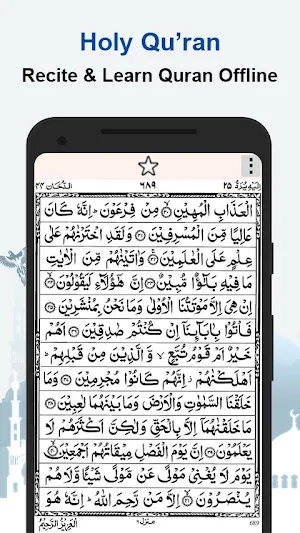 Holy Qu'ran
Recite & Learn Quran Offline
اِلَيْهِ يُرَدُّ ٢٥ ٦٨٩ الدُّخَان ٤٤
الْعَذَابِ الْمُهِيْنِ ۙ٣٠ مِنْ فِرْعَوْنَ ؕ اِنَّهٗ كَانَ
عَالِيًا مِّنَ الْمُسْرِفِيْنَ ٣١ وَلَقَدِ اخْتَرْنٰهُمْ عَلٰى
عِلْمٍ عَلَى الْعٰلَمِيْنَ ٣٢ وَاٰتَيْنٰهُمْ مِّنَ الْاٰيٰتِ
مَا فِيْهِ بَلٰٓؤٌا مُّبِيْنٌ ٣٣ اِنَّ هٰٓؤُلَآءِ لَيَقُوْلُوْنَ ٣٤
اِنْ هِيَ اِلَّا مَوْتَتُنَا الْاُوْلٰى وَمَا نَحْنُ بِمُنْشَرِيْنَ ٣٥
فَاْتُوْا بِاٰبَآئِنَاۤ اِنْ كُنْتُمْ صٰدِقِيْنَ ٣٦ اَهُمْ
خَيْرٌ اَمْ قَوْمُ تُبَّعٍ ۙ وَّالَّذِيْنَ مِنْ قَبْلِهِمْ ؕ
اَهْلَكْنٰهُمْ ؗ اِنَّهُمْ كَانُوْا مُجْرِمِيْنَ ٣٧ وَمَا
خَلَقْنَا السَّمٰوٰتِ وَالْاَرْضَ وَمَا بَيْنَهُمَا لٰعِبِيْنَ ٣٨
مَا خَلَقْنٰهُمَاۤ اِلَّا بِالْحَقِّ وَلٰكِنَّ اَكْثَرَهُمْ لَا
يَعْلَمُوْنَ ٣٩ اِنَّ يَوْمَ الْفَصْلِ مِيْقَاتُهُمْ اَجْمَعِيْنَ ٤٠
يَوْمَ لَا يُغْنِيْ مَوْلًى عَنْ مَّوْلًى شَيْئًا وَّلَا هُمْ
يُنْصَرُوْنَ ٤١ اِلَّا مَنْ رَّحِمَ اللّٰهُ ؕ اِنَّهٗ هُوَ
689 منزل ٦ الْعَزِيْزُ الرَّحِيْمُ